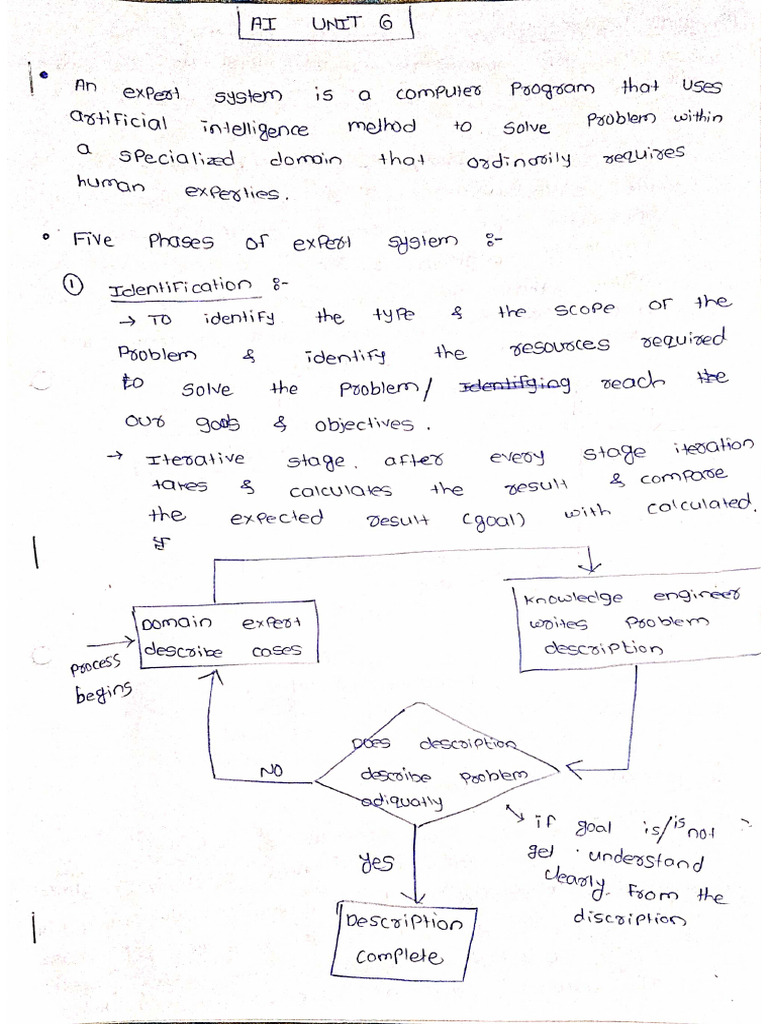 AI UNIT 6
• An expert system is a computer program that uses
artificial intelligence method to solve problem within
a specialized domain that ordinorily requires
human experties.
• Five Phases of expert system :-
① Identification :-
→ To identify the type & the scope of the
Problem & identify the resources required
to solve the problem/ Identifying reach the
our goals & objectives.
→ Iterative stage. after every stage iteration
takes & calculates the result & compare
the expected result (goal) with calculated.
Domain expert
describe cases
process
begins
Knowledge engineer
writes problem
description
Does description
describe problem
adiquatly
NO
Yes
→ if goal is/is not
get understand
clearly from the
discription
Description
complete